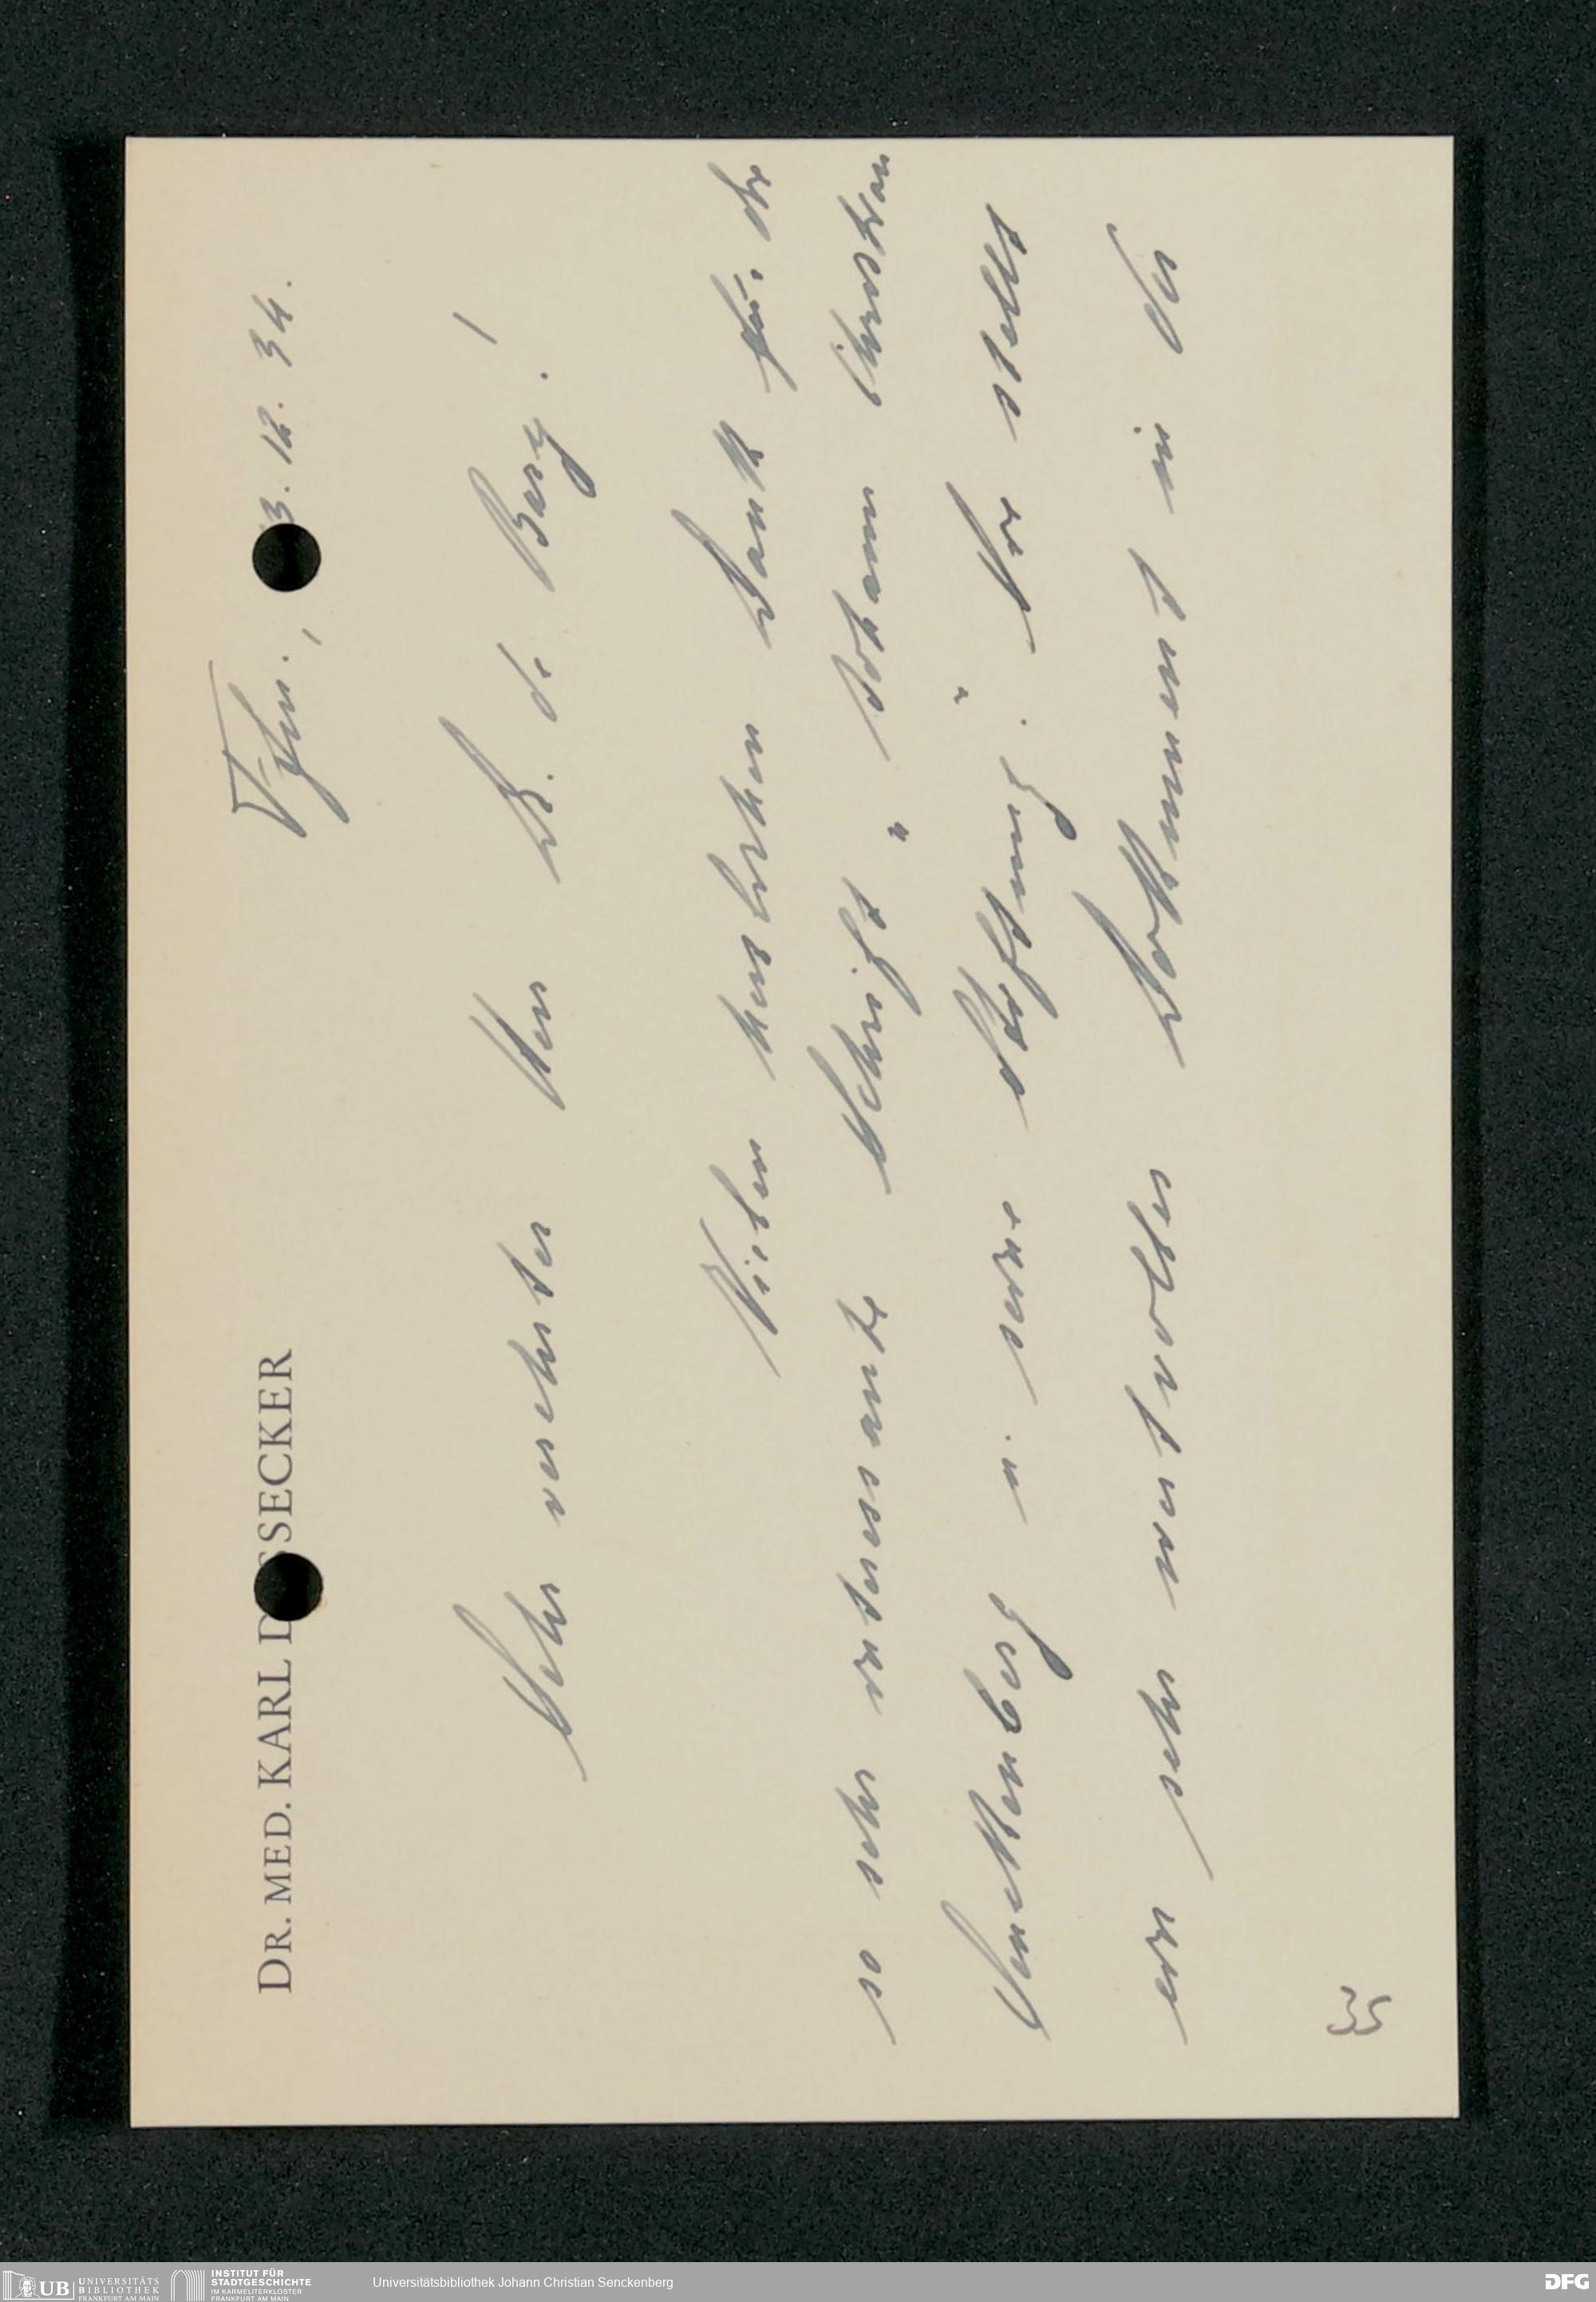 DR. MED. KARL D SSECKER
3. 12. 34.
Sehr verehrter Herr Dr. de Bary!
Vielen herzlichen Dank für die
so sehr interessante Schrift „Johann Christian
Senckenberg u. seine Stiftung“. Sie stellt
ein sehr wertvolles Dokument in der
35
UB UNIVERSITÄTS
BIBLIOTHEK
FRANKFURT AM MAIN
INSTITUT FÜR
STADTGESCHICHTE
IM KARMELITERKLOSTER
FRANKFURT AM MAIN
Universitätsbibliothek Johann Christian Senckenberg
DFG